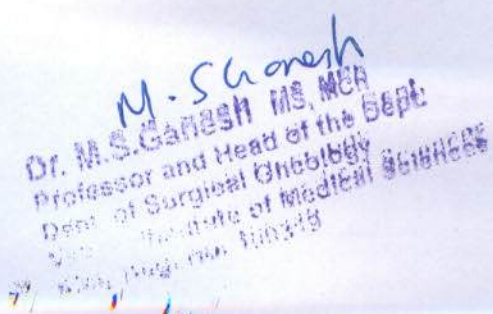 M. S Ganesh
Dr. M.S.Ganesh MS, MCh
Professor and Head of the Dept.
Dept. of Surgical Oncology
Institute of Medical Sciences